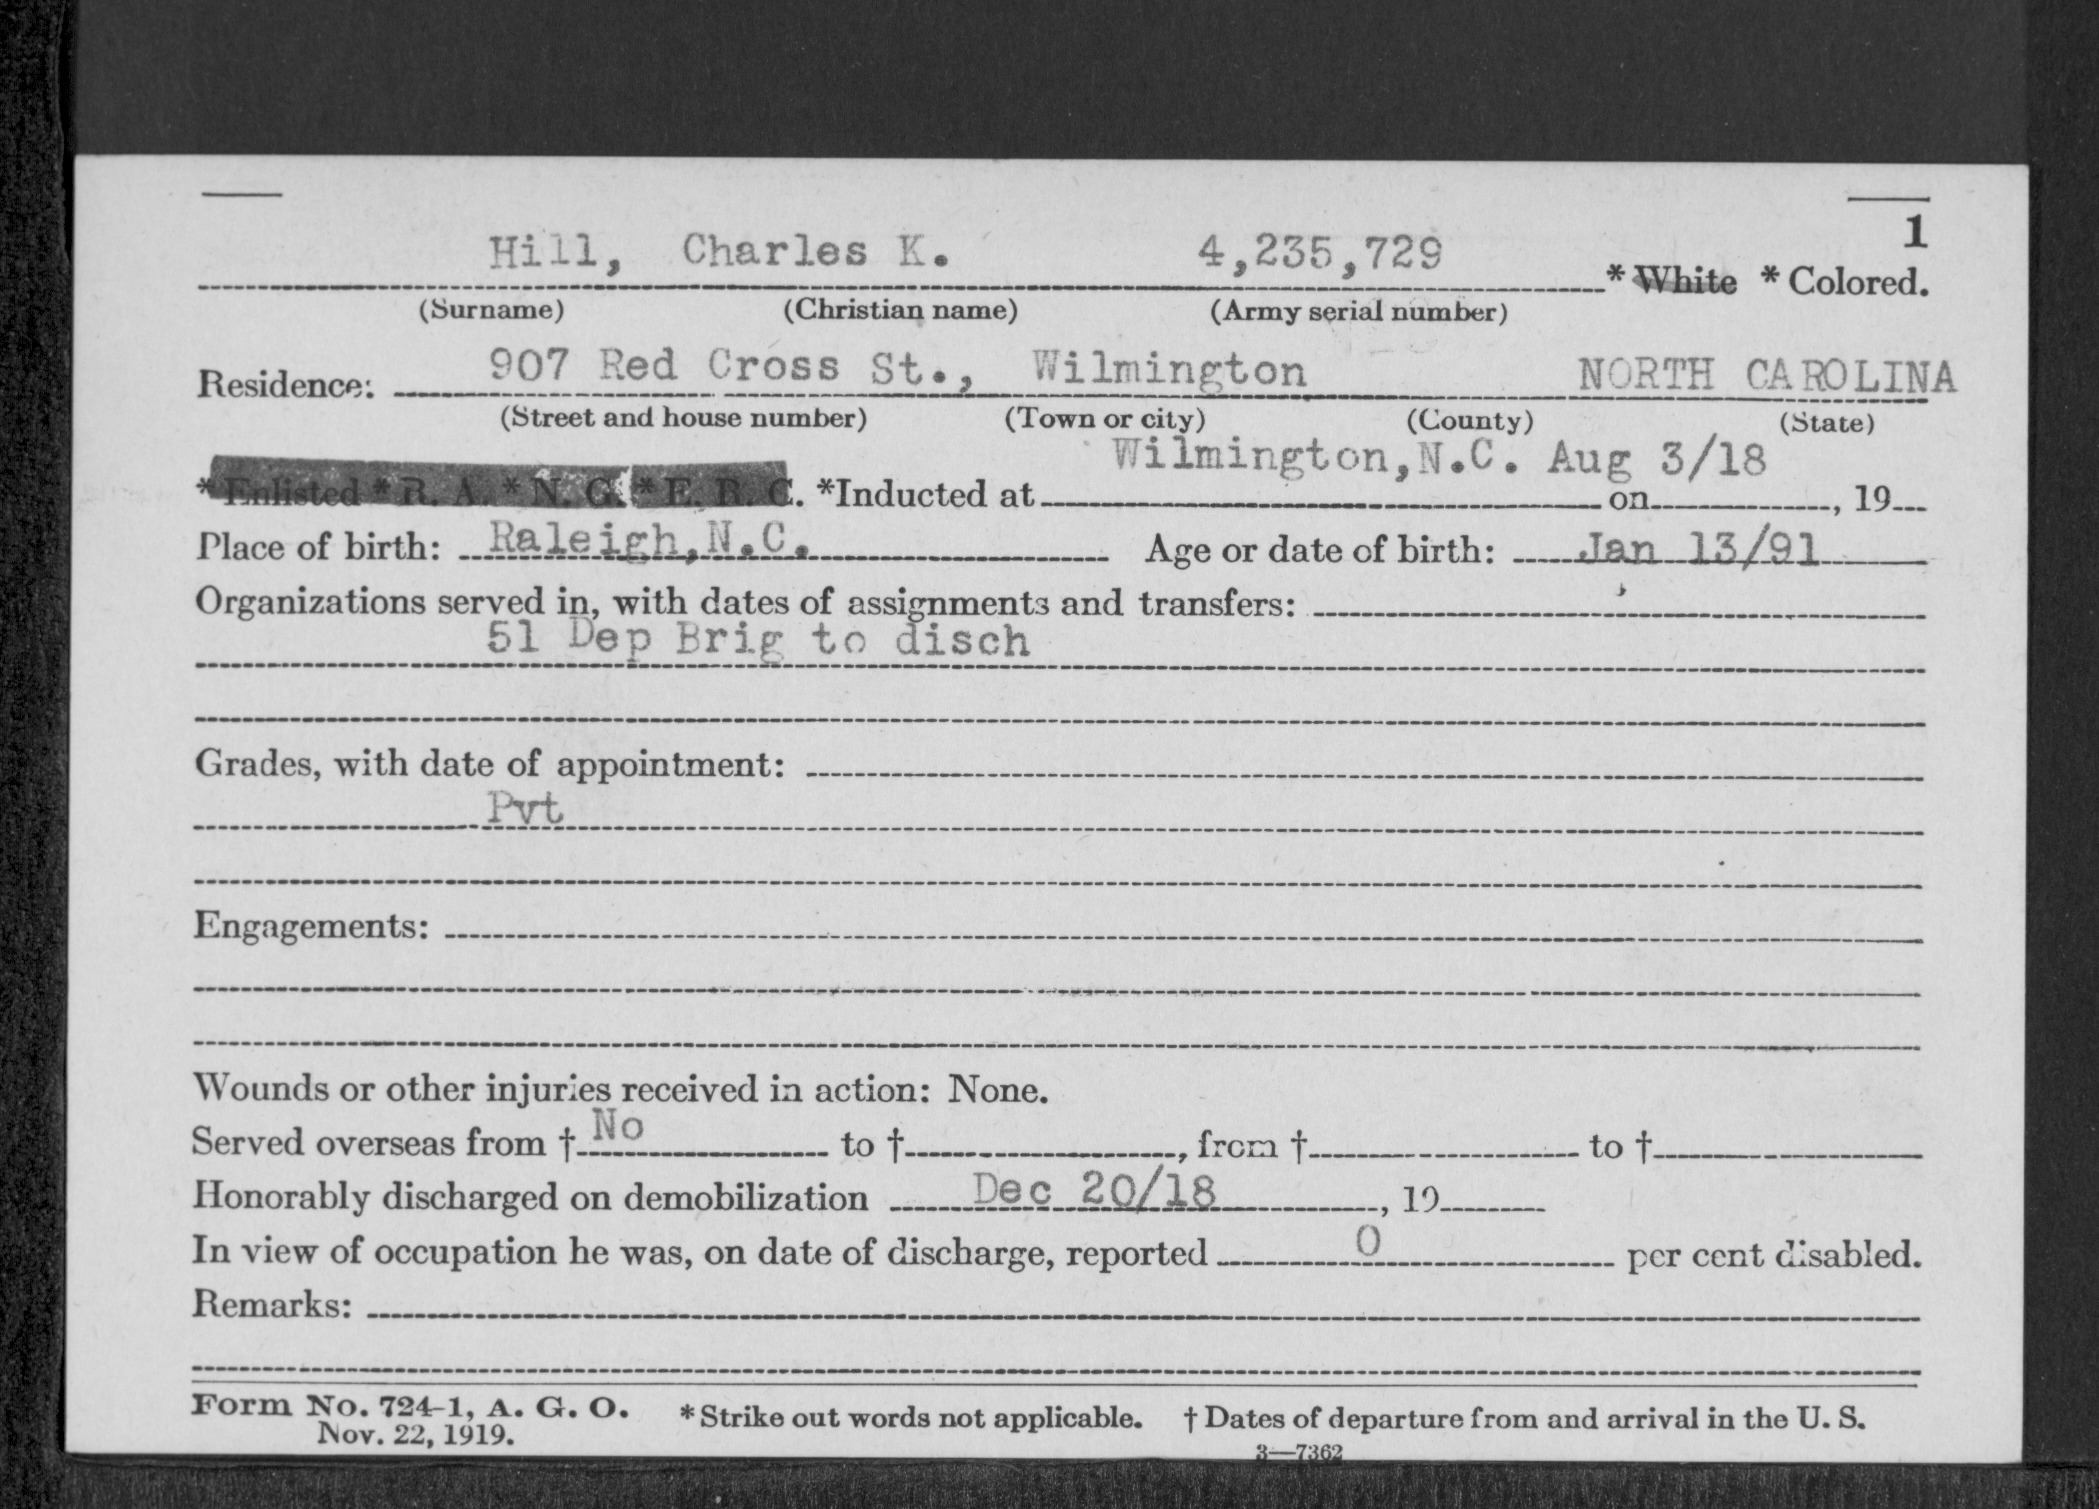 1
Hill, Charles K. 4,235,729 * White * Colored.
(Surname) (Christian name) (Army serial number)
Residence: 907 Red Cross St., Wilmington NORTH CAROLINA
(Street and house number) (Town or city) (County) (State)
Wilmington, N.C. Aug 3/18
* Enlisted * R. A. * N. G. * E. R. C. *Inducted at on , 19
Place of birth: Raleigh, N.C. Age or date of birth: Jan 13/91
Organizations served in, with dates of assignments and transfers:
51 Dep Brig to disch
Grades, with date of appointment:
Pvt
Engagements:
Wounds or other injuries received in action: None.
Served overseas from † No to † , from † to †
Honorably discharged on demobilization Dec 20/18 , 19
In view of occupation he was, on date of discharge, reported 0 per cent disabled.
Remarks:
Form No. 724-1, A. G. O. * Strike out words not applicable. † Dates of departure from and arrival in the U. S.
Nov. 22, 1919.
3—7362